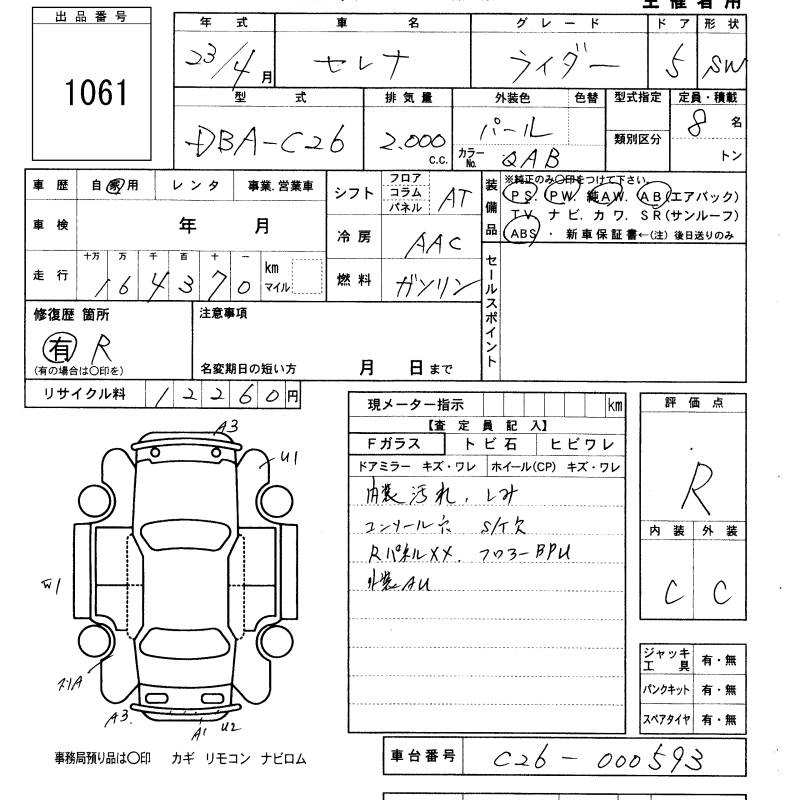 主催者用
出品番号
1061
年式 車名 グレード ドア 形状
23/4月 セレナ ライダー 5 SW
型式 排気量 外装色 色替 型式指定 定員・積載
DBA-C26 2.000 c.c. パール 8名
カラーNo. QAB 類別区分 トン
車歴 自家用 レンタ 事業.営業車
車検 年 月
走行 十万 万 千 百 十 一 km マイル
1 6 4 3 7 0
シフト フロア コラム パネル AT
冷房 AAC
燃料 ガソリン
装備品 ※純正のみ〇印をつけて下さい。
PS. PW. 純AW. AB(エアバック)
TV ナビ. カワ. SR(サンルーフ)
ABS ・ 新車保証書←(注) 後日送りのみ
セールスポイント
修復歴 箇所
有 R
(有の場合は〇印を)
注意事項
名変期日の短い方 月 日まで
リサイクル料 1 2 2 6 0 円
現メーター指示 km
【査定員記入】
Fガラス トビ石 ヒビワレ
ドアミラー キズ・ワレ ホイール(CP) キズ・ワレ
内装汚れ、シミ
コンソール穴 S/T欠
RパネルXX. フロアーBPU
外装AU
評価点
R
内装 外装
C C
ジャッキ工具 有・無
パンクキット 有・無
スペアタイヤ 有・無
A3
U1
W1
A3
A1 U2
事務局預り品は〇印 カギ リモコン ナビロム
車台番号 C26-000593